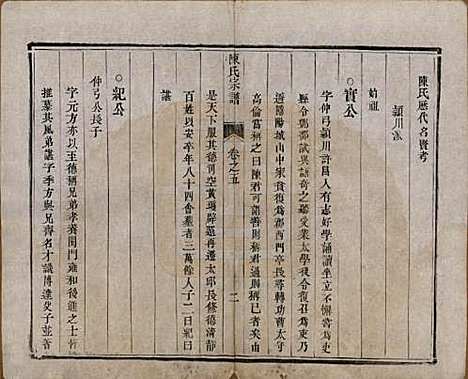 陳氏歷代名賢考
潁川派
始祖
○實公
字仲弓潁川許昌人有志好學誦讀坐立不懈嘗爲吏
縣令鄧邵試與語奇之聽受業太學後令復召爲吏乃
避隱陽城山中家貧復爲郡西門亭長尋轉功曹太守
高倫嘗 之曰陳君可謂善則稱君過則稱已者矣由
陳氏宗譜
卷之五
二
是天下服其德司空黃瓊辟選再遷太邱長修德清靜
百姓以安卒年八十四會葬者三萬餘人子二曰紀曰
諶
○紀公
仲弓公長子
字元方亦以至德稱兄弟孝養閨門雍和後之士皆
推慕其風弟諶字季方與兄齊名才識博達父子並著